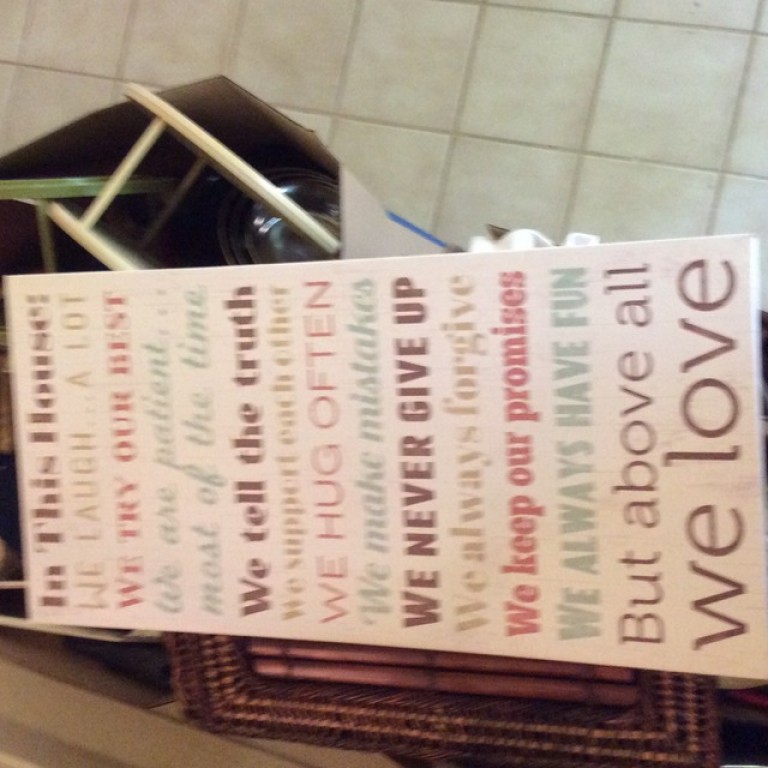 In This House:
WE LAUGH...A LOT
WE TRY OUR BEST
We are patient...
most of the time.
We tell the truth
We support each other
WE HUG OFTEN
We make mistakes
WE NEVER GIVE UP
We always forgive
We keep our promises
WE ALWAYS HAVE FUN
But above all
we love